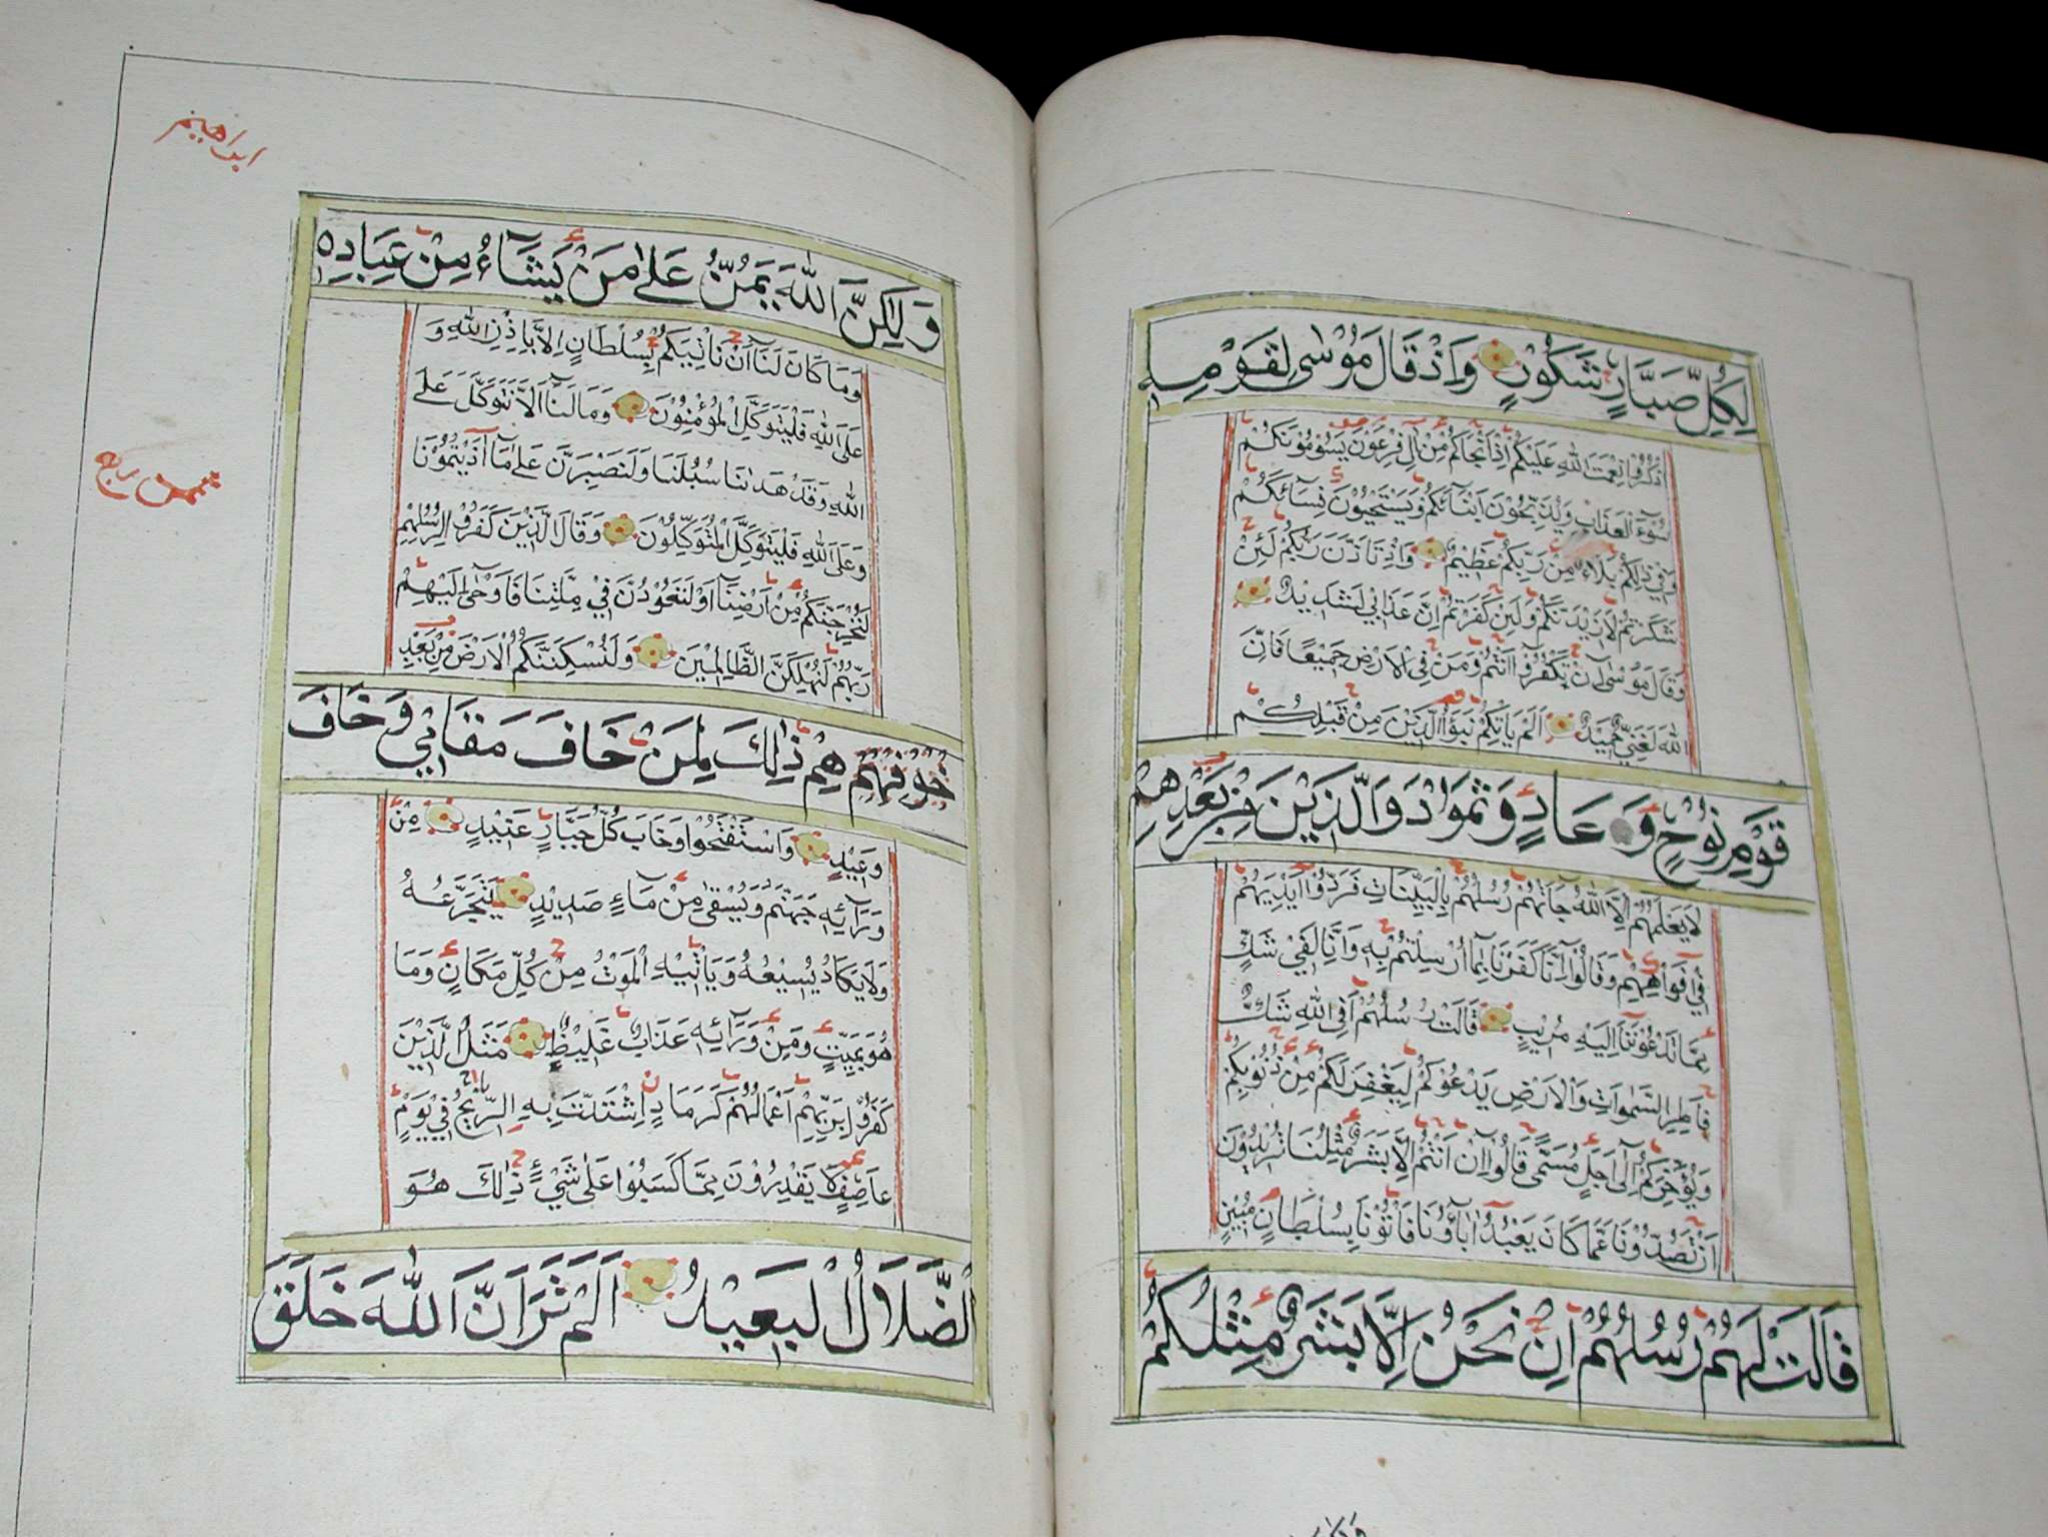 لِكُلِّ صَبَّارٍ شَكُوْرٍ وَاِذْ قَالَ مُوْسٰى لِقَوْمِهِ
اذْكُرُوْا نِعْمَتَ اللّٰهِ عَلَيْكُمْ اِذْ اَنْجَاكُمْ مِنْ اٰلِ فِرْعَوْنَ يَسُوْمُوْنَكُمْ
سُوْٓءَ الْعَذَابِ وَيُذَبِّحُوْنَ اَبْنَآئَكُمْ وَيَسْتَحْيُوْنَ نِسَآئَكُمْ
وَفِيْ ذٰلِكُمْ بَلَآءٌ مِنْ رَبِّكُمْ عَظِيْمٌ وَاِذْ تَاَذَّنَ رَبُّكُمْ لَئِنْ
شَكَرْتُمْ لَاَزِيْدَنَّكُمْ وَلَئِنْ كَفَرْتُمْ اِنَّ عَذَابِيْ لَشَدِيْدٌ
وَقَالَ مُوْسٰٓى اِنْ تَكْفُرُوْٓا اَنْتُمْ وَمَنْ فِي الْاَرْضِ جَمِيْعًا فَاِنَّ
اللّٰهَ لَغَنِيٌّ حَمِيْدٌ اَلَمْ يَاْتِكُمْ نَبَؤُا الَّذِيْنَ مِنْ قَبْلِكُمْ
قَوْمِ نُوْحٍ وَ عَادٍ وَثَمُوْدَ وَالَّذِيْنَ مِنْ بَعْدِهِمْ
لَا يَعْلَمُهُمْ اِلَّا اللّٰهُ جَآءَتْهُمْ رُسُلُهُمْ بِالْبَيِّنَاتِ فَرَدُّوْٓا اَيْدِيَهُمْ
فِيْٓ اَفْوَاهِهِمْ وَقَالُوْٓا اِنَّا كَفَرْنَا بِمَٓا اُرْسِلْتُمْ بِهٖ وَاِنَّا لَفِيْ شَكٍّ
مِمَّا تَدْعُوْنَنَٓا اِلَيْهِ مُرِيْبٍ قَالَتْ رُسُلُهُمْ اَفِي اللّٰهِ شَكٌّ
فَاطِرِ السَّمٰوَاتِ وَالْاَرْضِ يَدْعُوْكُمْ لِيَغْفِرَ لَكُمْ مِنْ ذُنُوْبِكُمْ
وَيُؤَخِّرَكُمْ اِلٰٓى اَجَلٍ مُسَمًّى قَالُوْٓا اِنْ اَنْتُمْ اِلَّا بَشَرٌ مِثْلُنَا تُرِيْدُوْنَ
اَنْ تَصُدُّوْنَا عَمَّا كَانَ يَعْبُدُ اٰبَآؤُنَا فَاْتُوْنَا بِسُلْطَانٍ مُبِيْنٍ
قَالَتْ لَهُمْ رُسُلُهُمْ اِنْ نَحْنُ اِلَّا بَشَرٌ مِثْلُكُمْ
ابراهيم
وَلٰكِنَّ اللّٰهَ يَمُنُّ عَلٰى مَنْ يَشَآءُ مِنْ عِبَادِهٖ
وَمَا كَانَ لَنَٓا اَنْ نَاْتِيَكُمْ بِسُلْطَانٍ اِلَّا بِاِذْنِ اللّٰهِ وَ
عَلَى اللّٰهِ فَلْيَتَوَكَّلِ الْمُؤْمِنُوْنَ وَمَا لَنَٓا اَلَّا نَتَوَكَّلَ عَلَى
اللّٰهِ وَقَدْ هَدٰينَا سُبُلَنَا وَلَنَصْبِرَنَّ عَلٰى مَٓا اٰذَيْتُمُوْنَا
وَعَلَى اللّٰهِ فَلْيَتَوَكَّلِ الْمُتَوَكِّلُوْنَ وَقَالَ الَّذِيْنَ كَفَرُوْا لِرُسُلِهِمْ
لَنُخْرِجَنَّكُمْ مِنْ اَرْضِنَٓا اَوْ لَتَعُوْدُنَّ فِيْ مِلَّتِنَا فَاَوْحٰٓى اِلَيْهِمْ
رَبُّهُمْ لَنُهْلِكَنَّ الظَّالِمِيْنَ وَلَنُسْكِنَنَّكُمُ الْاَرْضَ مِنْ بَعْدِ
هِمْ ذٰلِكَ لِمَنْ خَافَ مَقَامِيْ وَخَافَ
وَعِيْدِ وَاسْتَفْتَحُوْا وَخَابَ كُلُّ جَبَّارٍ عَنِيْدٍ مِنْ
وَرَآئِهٖ جَهَنَّمُ وَيُسْقٰى مِنْ مَآءٍ صَدِيْدٍ يَتَجَرَّعُهُ
وَلَا يَكَادُ يُسِيْغُهُ وَيَاْتِيْهِ الْمَوْتُ مِنْ كُلِّ مَكَانٍ وَمَا
هُوَ بِمَيِّتٍ وَمِنْ وَرَآئِهٖ عَذَابٌ غَلِيْظٌ مَثَلُ الَّذِيْنَ
كَفَرُوْا بِرَبِّهِمْ اَعْمَالُهُمْ كَرَمَادٍ اِشْتَدَّتْ بِهِ الرِّيْحُ فِيْ يَوْمٍ
عَاصِفٍ لَا يَقْدِرُوْنَ مِمَّا كَسَبُوْا عَلٰى شَيْءٍ ذٰلِكَ هُوَ
الضَّلَالُ الْبَعِيْدُ اَلَمْ تَرَ اَنَّ اللّٰهَ خَلَقَ